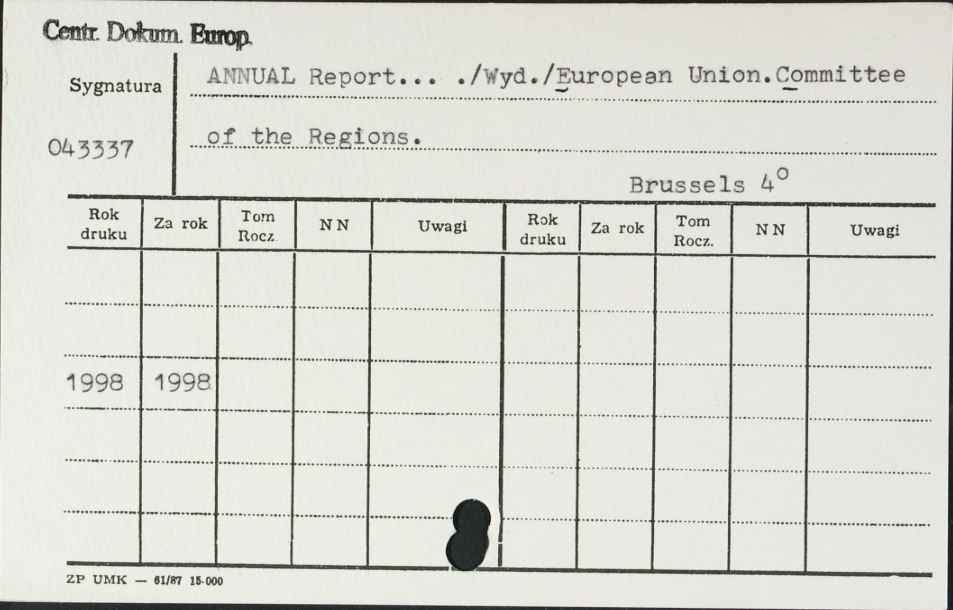 Centr. Dokum. Europ.
Sygnatura
ANNUAL Report... ./Wyd./European Union.Committee
043337
of the Regions.
Brussels 4°
Rok druku Za rok Tom Rocz. NN Uwagi Rok druku Za rok Tom Rocz. NN Uwagi
1998 1998
ZP UMK — 61/87 15-000